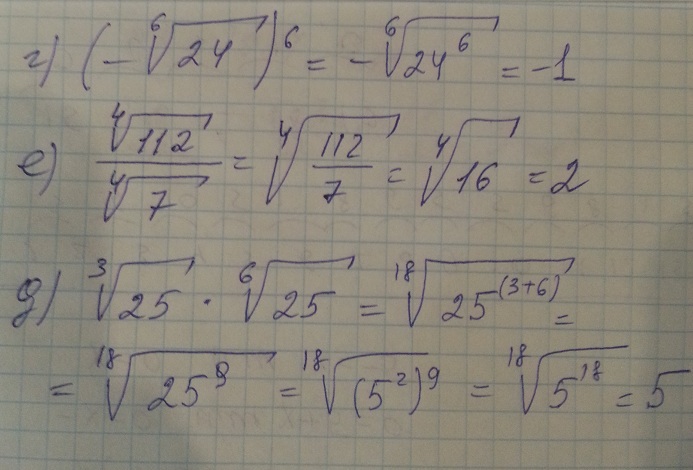 г) (-⁶√24)⁶ = -⁶√24⁶ = -1
е) ⁴√112 / ⁴√7 = ⁴√(112/7) = ⁴√16 = 2
д) ³√25 · ⁶√25 = ¹⁸√25⁽³⁺⁶⁾ =
= ¹⁸√25⁹ = ¹⁸√(5²)⁹ = ¹⁸√5¹⁸ = 5